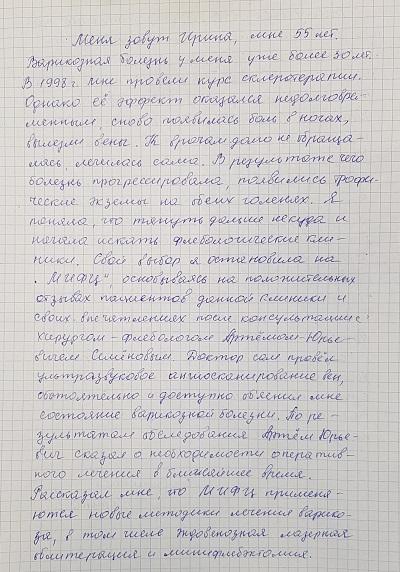 Меня зовут Ирина, мне 55 лет.
Варикозная болезнь у меня уже более 30 лет.
В 1998 г мне провели курс склеротерапии.
Однако её эффект оказался недолговре-
менным, снова появилась боль в ногах,
вылезли вены. К врачам долго не обраща-
лась, лечилась сама. В результате чего
болезнь прогрессировала, появились трофи-
ческие экземы на обеих голенях. Я
поняла, что тянуть дальше некуда и
начала искать флебологические кли-
ники. Свой выбор я остановила на
"МИФЦ", основываясь на положительных
отзывах пациентов данной клиники и
своих впечатлениях после консультации с
хирургом-флебологом Артёмом Юрье-
вичем Семёновым. Доктор сам провёл
ультразвуковое ангиосканирование вен,
обстоятельно и доступно объяснил мне
состояние варикозной болезни. По ре-
зультатам обследования Артём Юрье-
вич сказал о необходимости оператив-
ного лечения в ближайшее время.
Рассказал мне, что МИФЦ применя-
ются новые методики лечения варико-
за, в том числе эндовенозная лазерная
облитерация и минифлебэктомия.